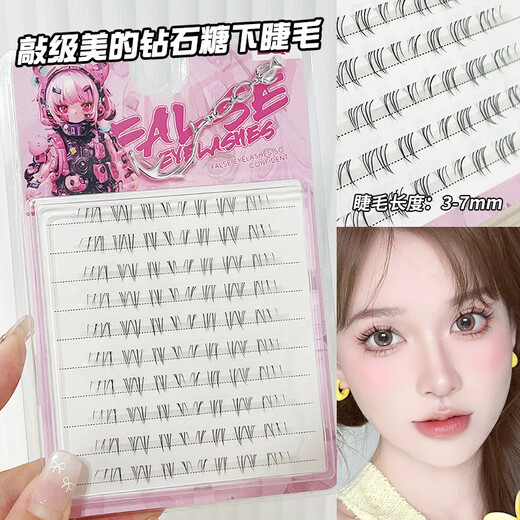 敲级美的钻石糖下睫毛
FALSE
EYELASHES
FALSE EYELASHES SO
CONFIDENT
睫毛长度：3-7mm